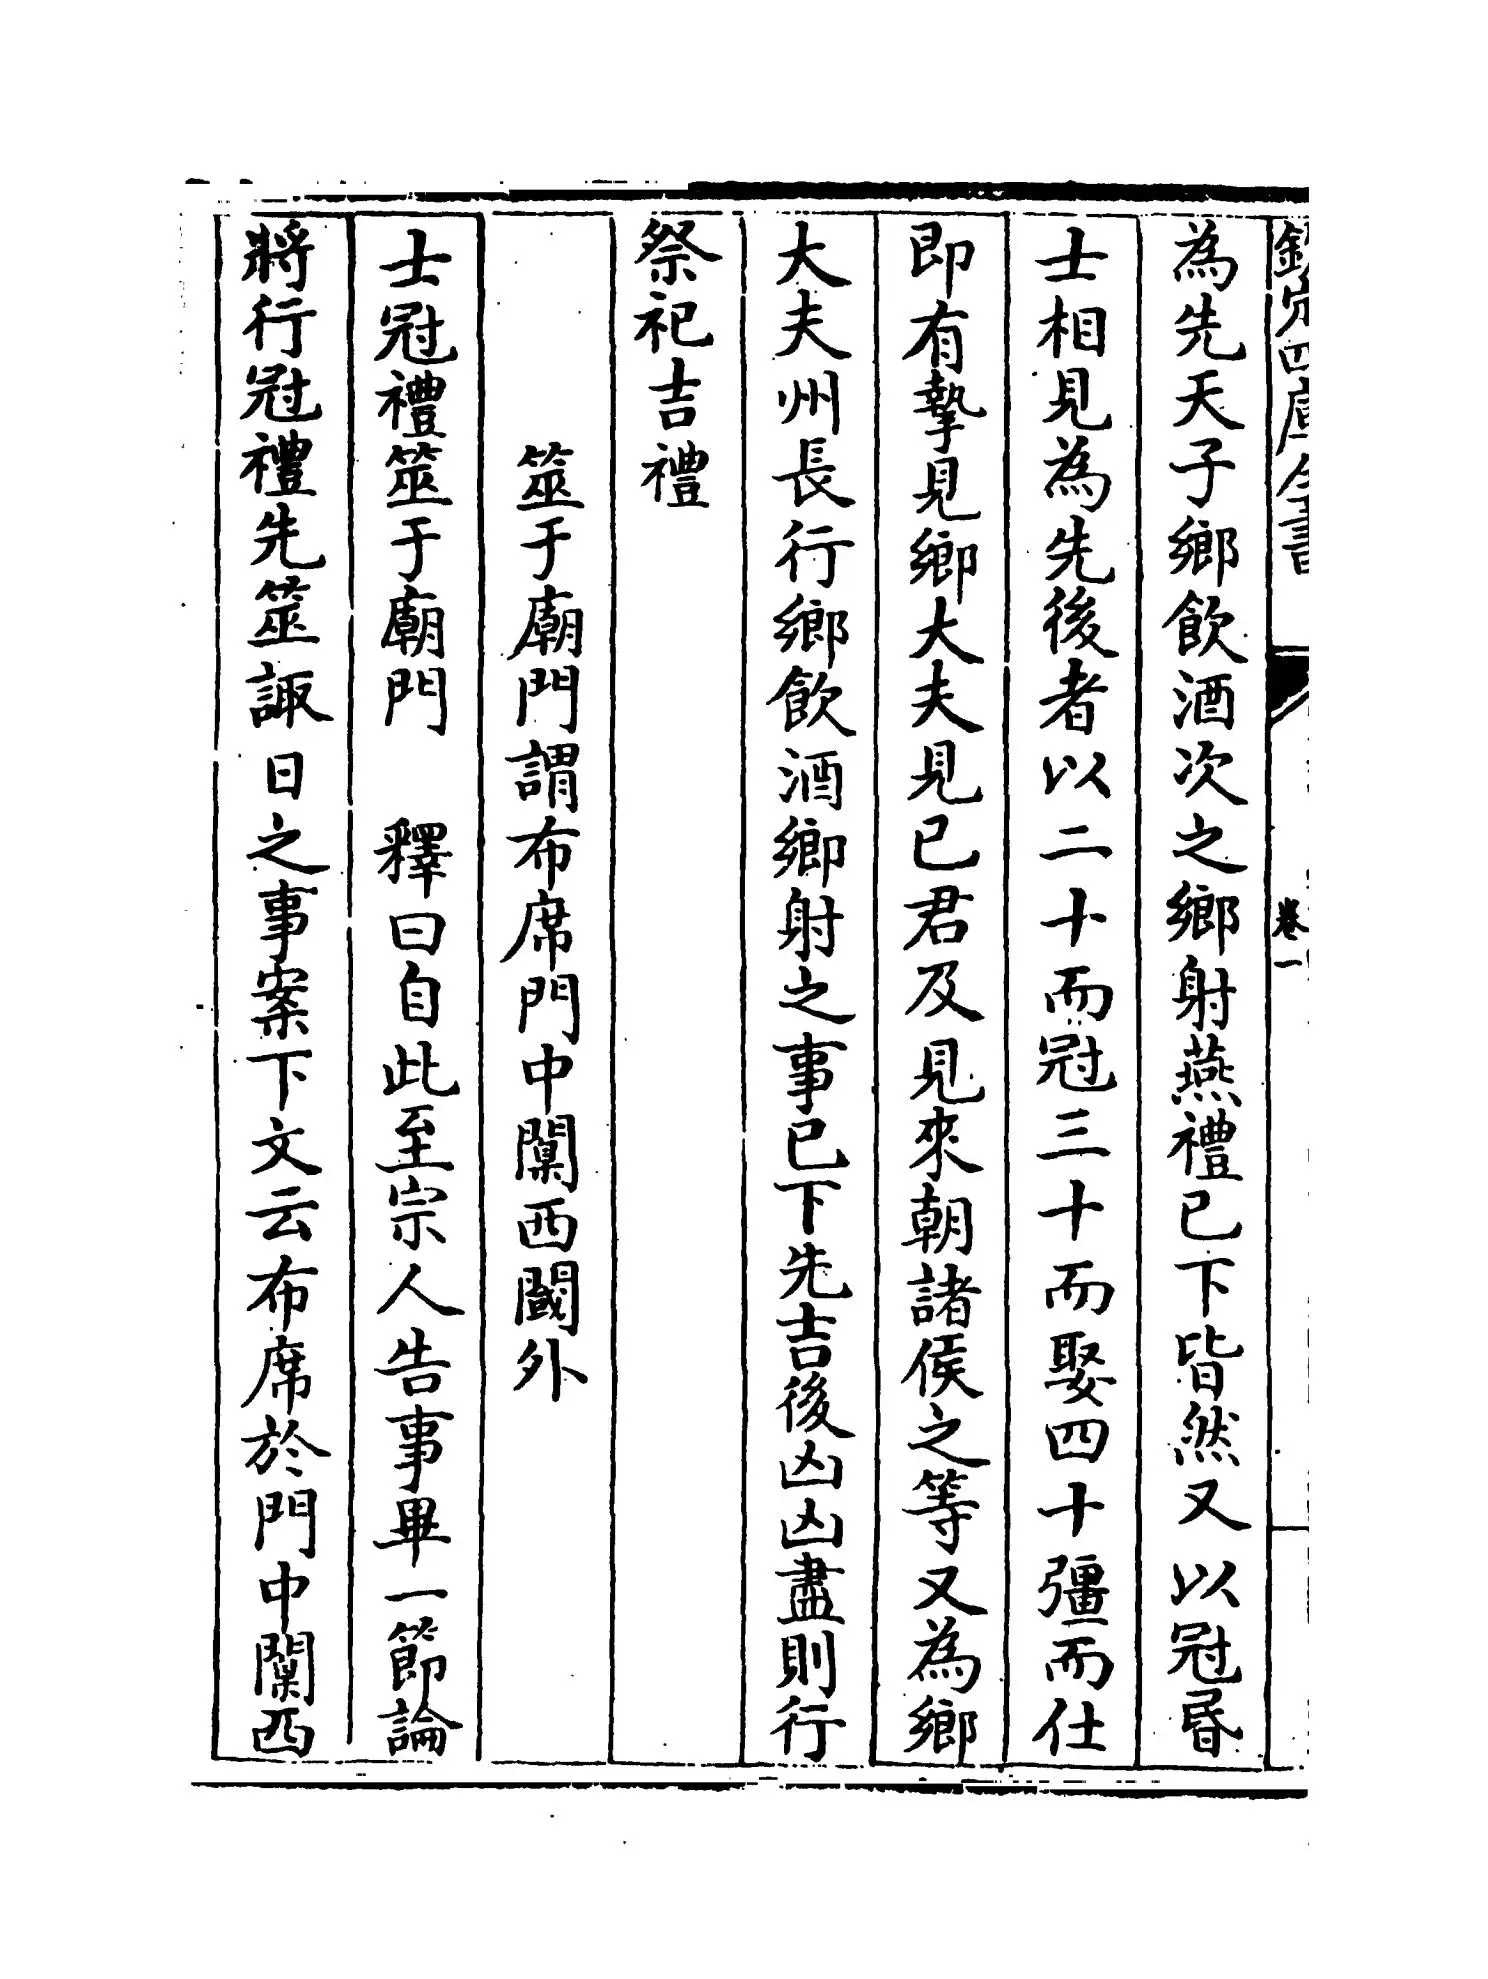 欽定四庫全書
卷一
為先天子鄉飲酒次之鄉射燕禮已下皆然又以冠昬
士相見為先後者以二十而冠三十而娶四十彊而仕
即有摯見鄉大夫見已君及見來朝諸侯之等又為鄉
大夫州長行鄉飲酒鄉射之事已下先吉後凶凶盡則行
祭祀吉禮
筮于廟門謂布席門中闑西閾外
士冠禮筮于廟門 釋曰自此至宗人告事畢一節論
將行冠禮先筮諏日之事案下文云布席於門中闑西